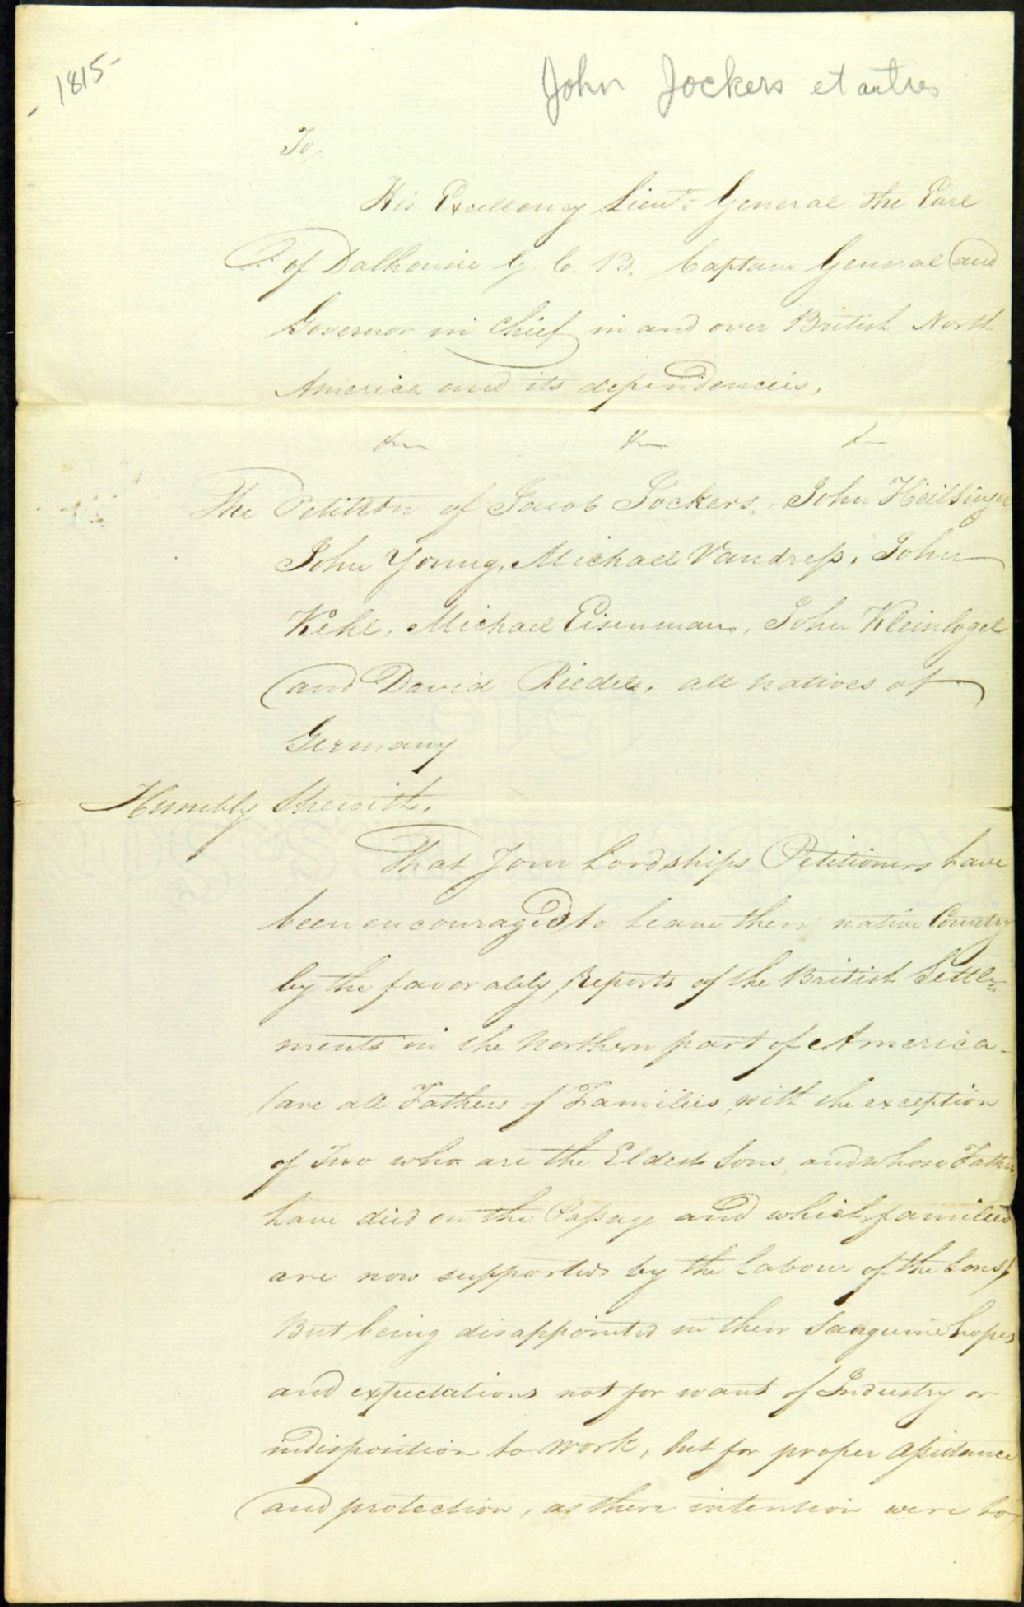 1815-
John Jockers et autres
To
His Excellency Lieut: General the Earl
of Dalhousie G. C. B. Captain General and
Governor in Chief in and over British North
America and its dependencies.
The Petition of Jacob Jockers, John Heilsinger
John Young, Michael Vandress, John
Kehl, Michael Eisenman, John Kleinlogel
and David Riedel, all natives of
Germany
Humbly Sheweth.
That Your Lordships Petitioners have
been encouraged to leave their native Country
by the favorably Reports of the British Settle-
ments in the Northern part of America-
(are all Fathers of Families, with the exception
of Two who are the Eldest Sons, and whose Fathers
have died on the Passage and which families
are now supported by the labour of the Sons)
But being disappointed in their Sanguine hopes
and expectations not for want of Industry or
indisposition to work, but for proper Assistance
and protection, as there intention were to